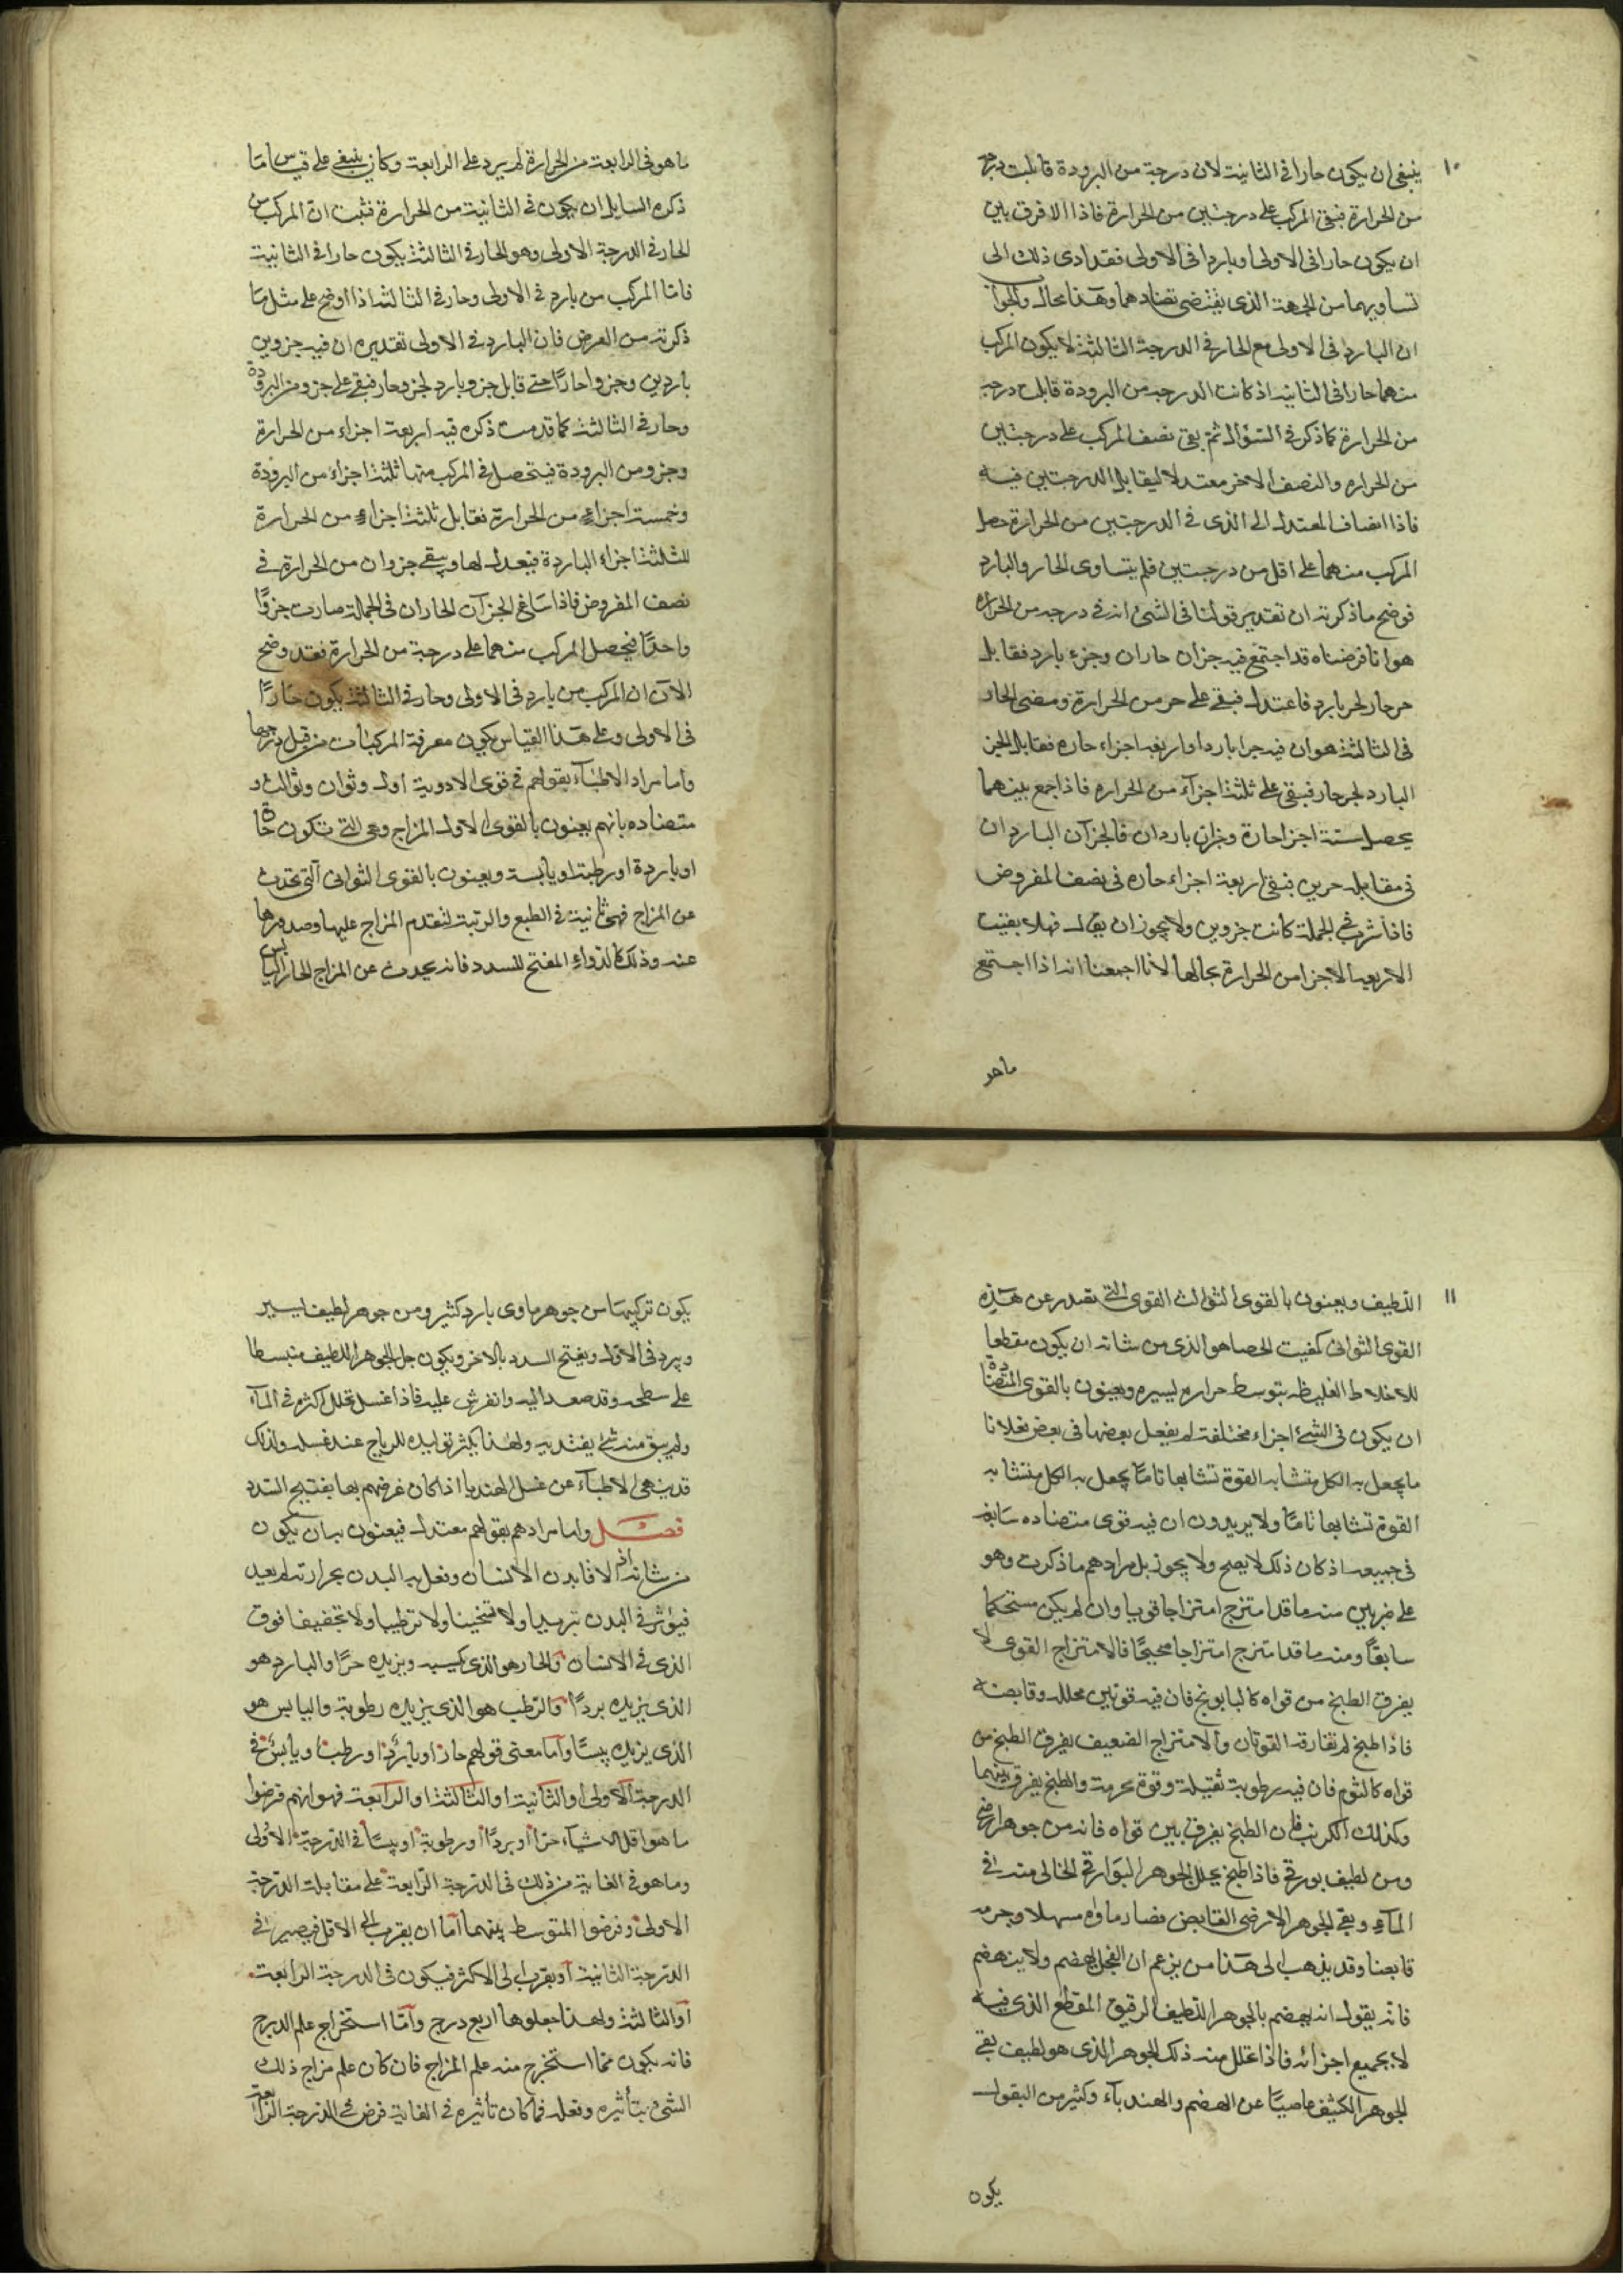 ١٠
ينبغي ان يكون حارا في الثانية لان درجة من البرودة قابلت درجة
من الحرارة فبقى المركب على درجتين من الحرارة فاذا لا فرق بين
ان يكون حارا في الاولى او باردا في الاولى فقد ادى ذلك الى
تساويهما من الجهة الذى يقتضي تضادهما وهذا محال والجواب
ان البارد في الاولى مع الحار في الدرجة الثالثة لا يكون المركب
منهما حارا في الثانية اذ كانت الدرجة من البرودة قابلت درجة
من الحرارة كما ذكر في السؤال ثم بقى نصف المركب على درجتين
من الحراره والنصف الاخر معتدلا ليقابل الدرجتين فيه
فاذا انضاف المعتدل الى الذى في الدرجتين من الحرارة حصل
المركب منهما على اقل من درجتين فلم يتساوى الحار والبارد
فوضح ما ذكرته ان تقدير قولنا في الشئ انه في درجه من الحراره
هو انا فرضناه قد اجتمع فيه جزان حاران وجزء بارد فقابل
حر حار لحر بارد فاعتدل فبقى على حر من الحرارة ومضى الحار
في الثالثة هو ان فيه جرا باردا واربعه اجزاء حاره فقابل الجز
البارد لجر حار فبقى على ثلثة اجزآء من الحراره فاذا جمع بينهما
يحصل ستة اجزا حارة وجزان باردان فالجزآن الباردان
في مقابله حرين فبقى اربعة اجزاء حاره في نصف المفروض
فاذا في الجملة كانت جزوين ولا يجوز ان يقال فهلا بقيت
الاربعة الاجزا من الحرارة بحالها لانا اجمعنا انه اذا اجتمع
ما هو
ما هو في الرابعة من الحرارة لم يرد على الرابعة وكان ينبغي على قياس ما
ذكره السايل ان يكون في الثانية من الحرارة فثبت ان المركب من
الحار في الدرجة الاولى وهو الحار في الثالثة يكون حارا في الثانية
فاما المركب من بارد في الاولى وحار في الثالثة اذا اوضح على مثل ما
ذكرته من الفرض فان البارد في الاولى تقديره ان فيه جزوين
باردين وجزوا حارًا حتى قابل جزو بارد لجز وحار فبقى على جزو من البرودة
وحار في الثالثة كما قدمت ذكره فيه اربعة اجزاء من الحرارة
وجزو من البرودة فيتحصل في المركب منها ثلثة اجزاء من البرودة
وخمسة اجزاء من الحرارة فقابل ثلثة اجزاء من الحرارة
للثلثة اجزاء الباردة فيعدل لها ويبقى جزوان من الحرارة في
نصف المفروض فاذا شاع الجزآن الحاران في الجملة صارت جزوًا
واحدًا فيحصل المركب منهما على درجة من الحرارة فقد وضح
الآن ان المركب من بارد في الاولى وحار في الثالثة يكون حارًا
في الاولى وعلى هذا القياس يكون معرفة المركبات من قبل درجها
واما مراد الاطبآء بقولهم في قوى الادوية اول وثوان وثوالث و
متضاده بانهم يعنون بالقوى الاول المزاج وهى التى تكون حارة
او باردة او رطبة او يابسة ويعنون بالقوى الثوانى التى تحدث
عن المزاج فهى ثانية في الطبع والرتبة لتقدم المزاج عليها وصدورها
عنه وذلك كالدواء المفتح للسدد فانه يحدث عن المزاج الحار اليابس
١١
اللطيف ويعنون بالقوى الثوالث القوى التى تصدر عن هذه
القوى الثوانى كمفيت الحصا هو الذى من شانه ان يكون مقطعا
للاخلاط الغليظه بتوسط حراره يسيره ويعنون بالقوى المتضادة
ان يكون في الشئ اجزاء مختلفة لم يفعل بعضها في بعض فعلا تا
ما يجعل به الكل متشابه القوة تشابها تاما يجعل به الكل متشابه
القوة تشابها تاما ولا يريدون ان فيه قوى متضاده سابغه
في جميعه اذ كان ذلك لا يصح ولا يجوز بل مرادهم ما ذكرت وهو
على ضربين منه ما قد امتزج امتزاجا قويا وان لم يكن مستحكما
سابقًا ومنه ما قد امتزج امتزاجا صحيحًا فالامتزاج القوى لا
يفرق الطبخ من قواه كالبابونج فان فيه قوتين محلله وقابضة
فاذا طبخ لم تفارقه القوتان والامتزاج الضعيف يفرق الطبخ من
قواه كالثوم فان فيه رطوبة ثقيلة وقوة محرمة والطبخ يفرق بينهما
وكذلك الكرنب فان الطبخ يفرق بين قواه فانه من جوهر ارضى
ومن لطيف بورقى فاذا طبخ يحلل الجوهر البوارقى الخالى منه في
المآء وبقى الجوهر الارضى القابض فصار ماؤه مسهلا وجرمه
قابضا وقد يذهب الى هذا من يزعم ان الفجل يهضم ولا ينهضم
فانه يقول انه يهضم بالجوهر اللطيف الرقيق المقطع الذى فيه
لا بجميع اجزائه فاذا تحلل منه ذلك الجوهر الذى هو لطيف بقى
الجوهر الكثيف عاصيًا عن الهضم والهندبآء وكثير من البقول
يكون
يكون تركيبها من جوهر ماوى بارد كثير ومن جوهر لطيف يسير
ويبرد في الاول ويفتح السدد بالاخر ويكون جل الجوهر اللطيف منبسطا
على سطحه وقد صعد اليه وانفرش عليه فاذا غسل تحلل اكثره في المآء
ولم يبق منه شئ يعتد به ولهذا يكثر توليده للرياح عند غسله ولذلك
قد ينهى الاطبآء عن غسل الهندبا اذا كان غرضهم بها بفتيح السدد
فصل واما مرادهم بقولهم معتدل فيعنون به ان يكون
من شانه انه اذا لاقا بدن الانسان وفعل به البدن بحرارته لم يعد
فيؤثر في البدن تبريدا ولا تسخينا ولا ترطيبا ولا تجفيفا فوق
الذى في الانسان والحار هو الذى يكسبه ويزيده حرًا والبارد هو
الذى يزيده بردًا والرطب هو الذى يزيده رطوبة واليابس هو
الذى يزيده يبسًا واما معنى قولهم حار او بارد او رطب او يابس في
الدرجة الاولى او الثانية او الثالثة او الرابعة فهو انهم فرضوا
ما هو اقل الاشيآء حرًا او بردًا او رطوبة او يبسًا في الدرجة الاولى
وما هو في الغاية من ذلك في الدرجة الرابعة على مقابلة الدرجة
الاولى وفرضوا المتوسط بينهما اما ان يقرب الى الاقل فيصير في
الدرجة الثانية او يقرب الى الاكثر فيكون في الدرجة الرابعة
او الثالثة ولهذا جعلوها اربع درج واما استخراج علم الدرج
فانه يكون مما استخرج منه علم المزاج فان كان علم مزاج ذلك
الشئ بتأثيره وفعله فما كان تأثيره في الغاية فرض في الدرجة الرابعة